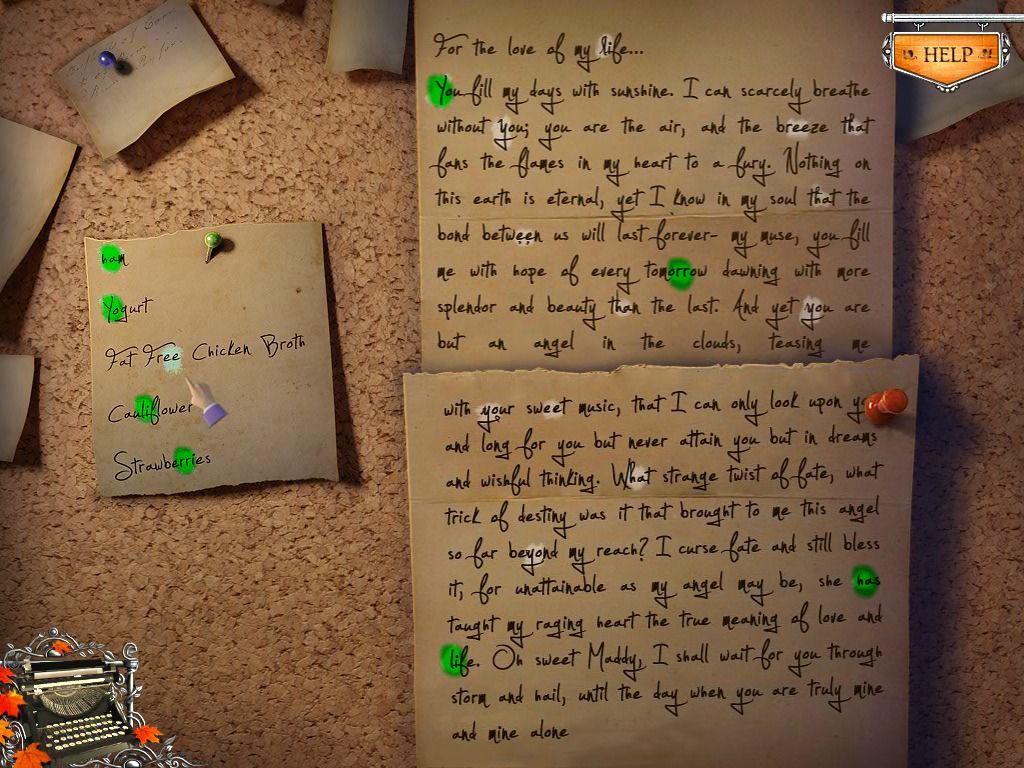 For the love of my life...
You fill my days with sunshine. I can scarcely breathe
without you; you are the air, and the breeze that
fans the flames in my heart to a fury. Nothing on
this earth is eternal, yet I know in my soul that the
bond between us will last forever- my muse, you fill
me with hope of every tomorrow dawning with more
splendor and beauty than the last. And yet you are
but an angel in the clouds, teasing me
with your sweet music, that I can only look upon
and long for you but never attain you but in dreams
and wishful thinking. What strange twist of fate, what
trick of destiny was it that brought to me this angel
so far beyond my reach? I curse fate and still bless
it, for unattainable as my angel may be, she has
taught my raging heart the true meaning of love and
life. Oh sweet Maddy, I shall wait for you through
storm and hail, until the day when you are truly mine
and mine alone
ham
Yogurt
Fat Free Chicken Broth
Cauliflower
Strawberries
HELP